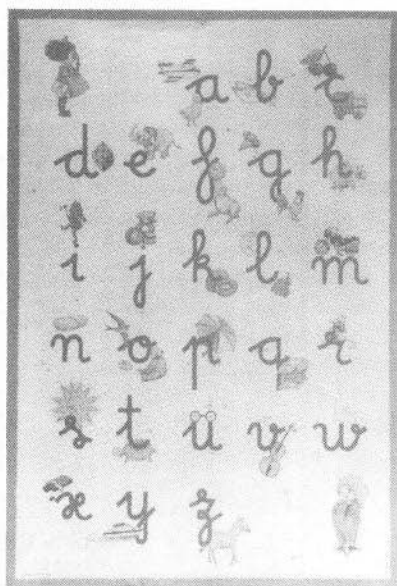 a b c
d e f g h
i j k l m
n o p q r
s t u v w
x y z